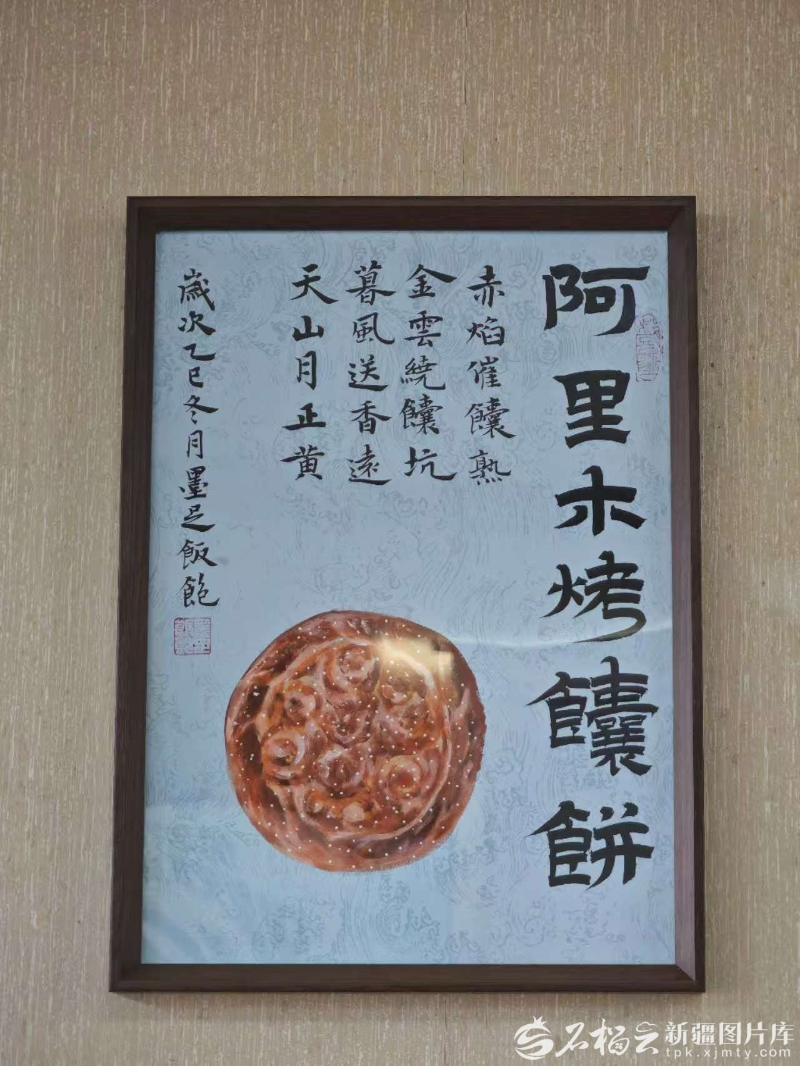 阿里木烤馕餅
赤焰催饢熟
金雲繞饢坑
暮風送香遠
天山月正黄
歲次乙巳冬月墨足飯飽
石榴云 新疆图片库
tpk.xjmty.com